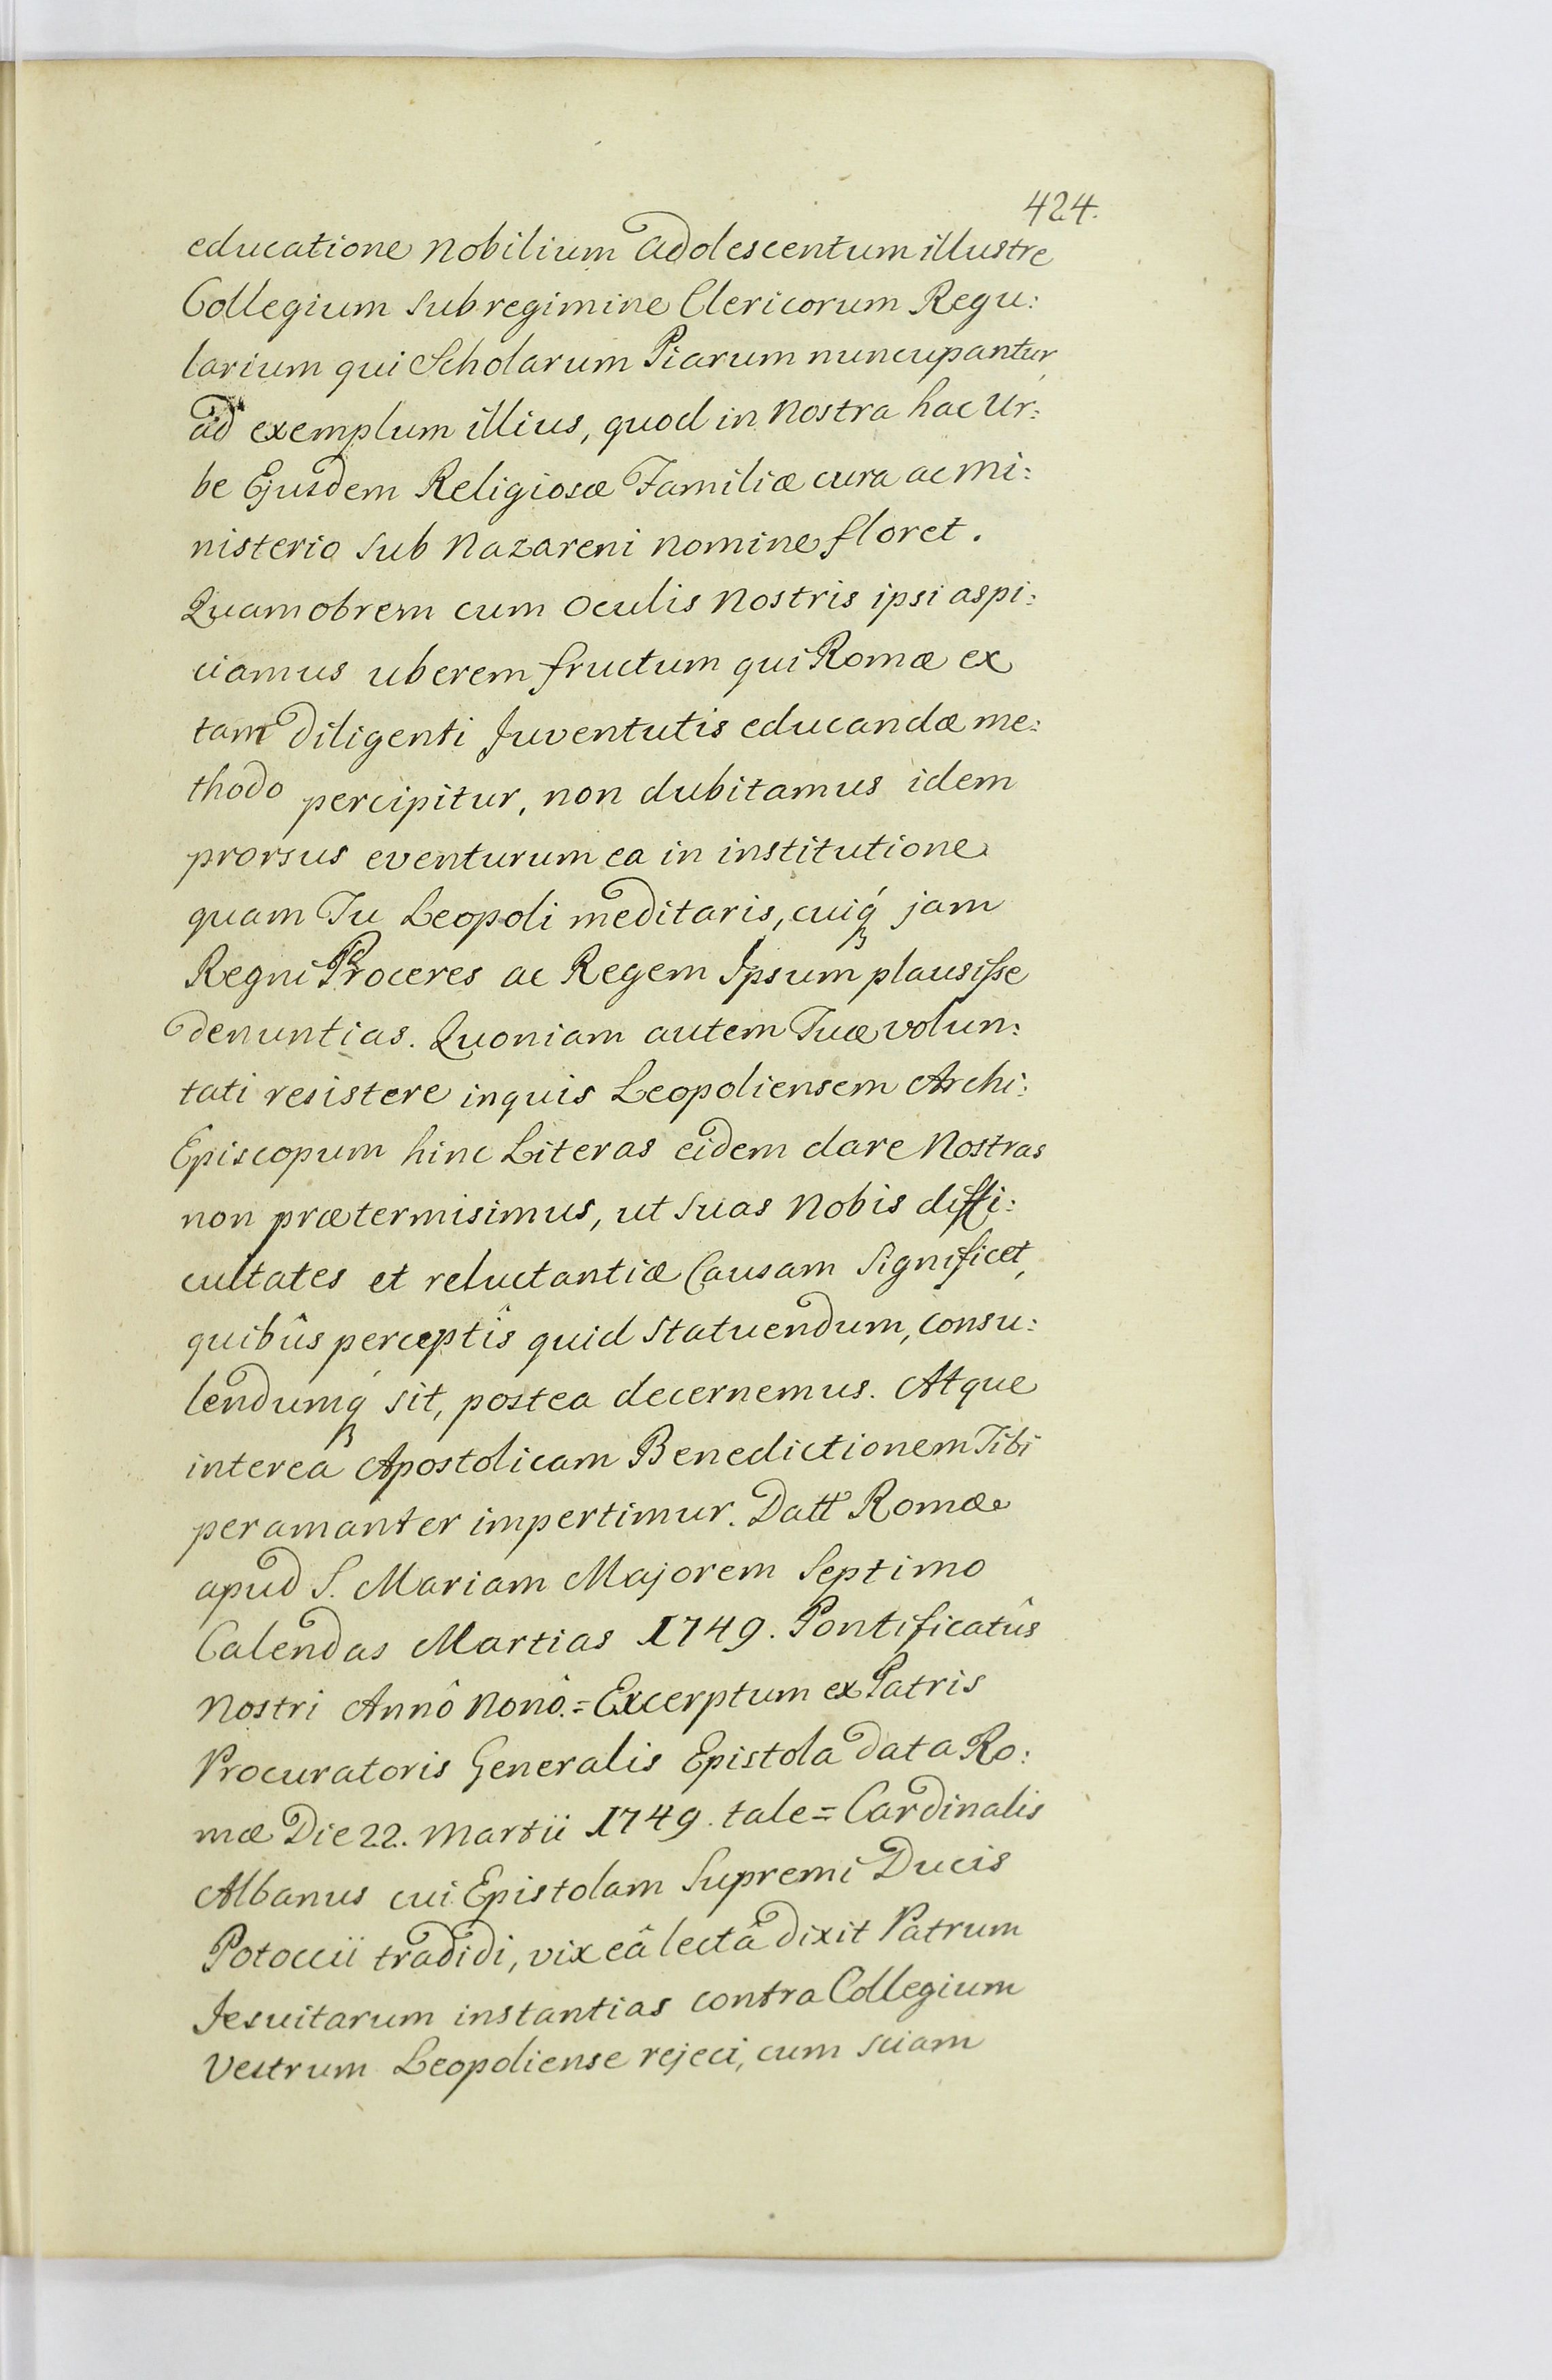 424.
educatione Nobilium adolescentum illustre
Collegium sub regimine Clericorum Regu:
larium qui Scholarum Piarum nuncupantur,
ad exemplum illius, quod in Nostra hac Ur:
be Ejusdem Religiosæ Familiæ cura ac Mi:
nisterio sub Nazareni nomine floret.
Quamobrem cum oculis Nostris ipsi aspi:
ciamus uberem fructum qui Romæ ex
tam diligenti Juventutis educandæ me:
thodo percipitur, non dubitamus idem
prorsus eventurum ea in institutione
quam Tu Leopoli meditaris, cuiq́ꝫ jam
Regni Proceres ac Regem Ipsum plausisse
denuntias. Quoniam autem Tuæ volun:
tati resistere inquis Leopoliensem Archi:
Episcopum hinc Literas eidem dare Nostras
non prætermisimus, ut suas Nobis diffi:
cultates et reluctantiæ Causam significet,
quibûs perceptîs quid statuendum, consu:
lendumq́ꝫ sit, postea decernemus. Atque
interea Apostolicam Benedictionem Tibi
peramanter impertimur. Datt Romæ
apud S. Mariam Majorem Septimo
Calendas Martias 1749. Pontificatûs
Nostri Annô Nonô. = Excerptum ex Patris
Procuratoris Generalis Epistola data Ro:
mæ Die 22. Martii 1749. tale = Cardinalis
Albanus cui Epistolam Supremi Ducis
Potoccii tradidi, vix eâ lectâ dixit Patrum
Jesuitarum instantias contra Collegium
Vestrum Leopoliense rejeci, cum sciam